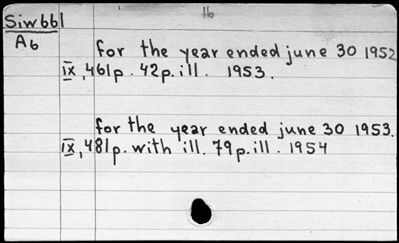 16
Siw661
A6
for the year ended june 30 1952
IX, 461p. 42p. ill. 1953.
for the year ended june 30 1953.
IX, 481p. with ill. 79p. ill. 1954